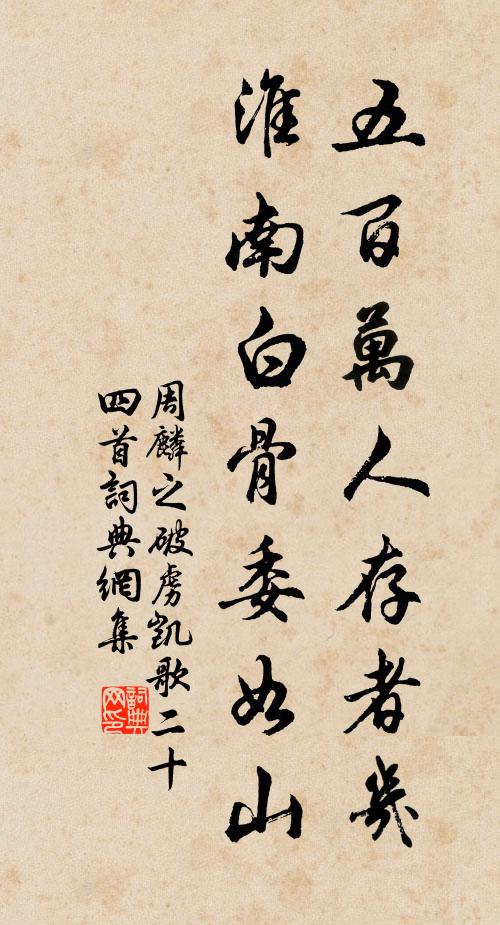 五百萬人存者幾
淮南白骨委如山
周麟之破虜凱歌二十
四首詞典網集
詞典
网印